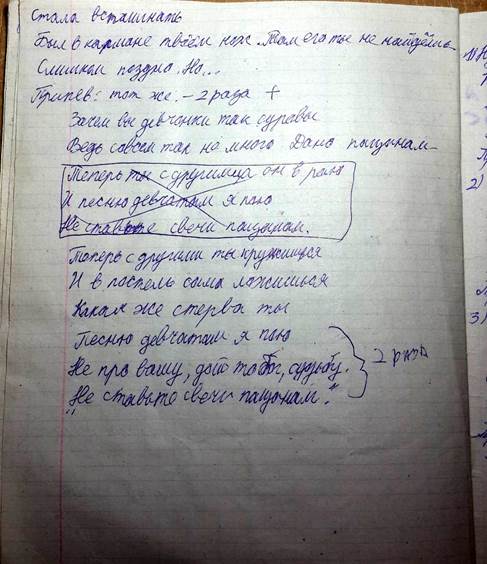 Стала вспаминать
Был в кармане твоём нож. Там его ты не найдёшь
Слишком поздно. Но...
Припев: тот же. - 2 раза +
Зачем вы девчонки так суравы
Ведь совсем так не много Дано пацынам
Теперь ты с другим, а он в раю
И песню девчатам я пою
Не ставьте свечи пацанам.
Теперь с другими ты кружишься
И в постель сама ложишься
Какая же стерва ты
Песню девчатам я пою
Не про вашу, дай то Бог, судьбу.
"Не ставьте свечи пацанам."
2 раза
1)
2)
3)